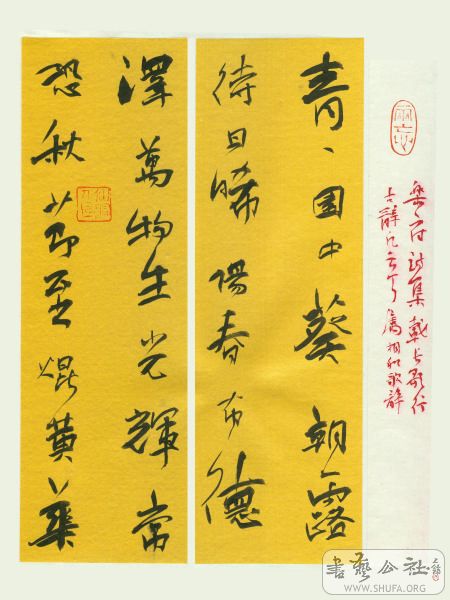 樂府詩集載長歌行
古辭凡 屬相和歌辭
青々園中葵朝露
待日晞陽春布德
澤萬物生光輝常
恐秋節至焜黃華
書藝公社
WWW.SHUFA.ORG